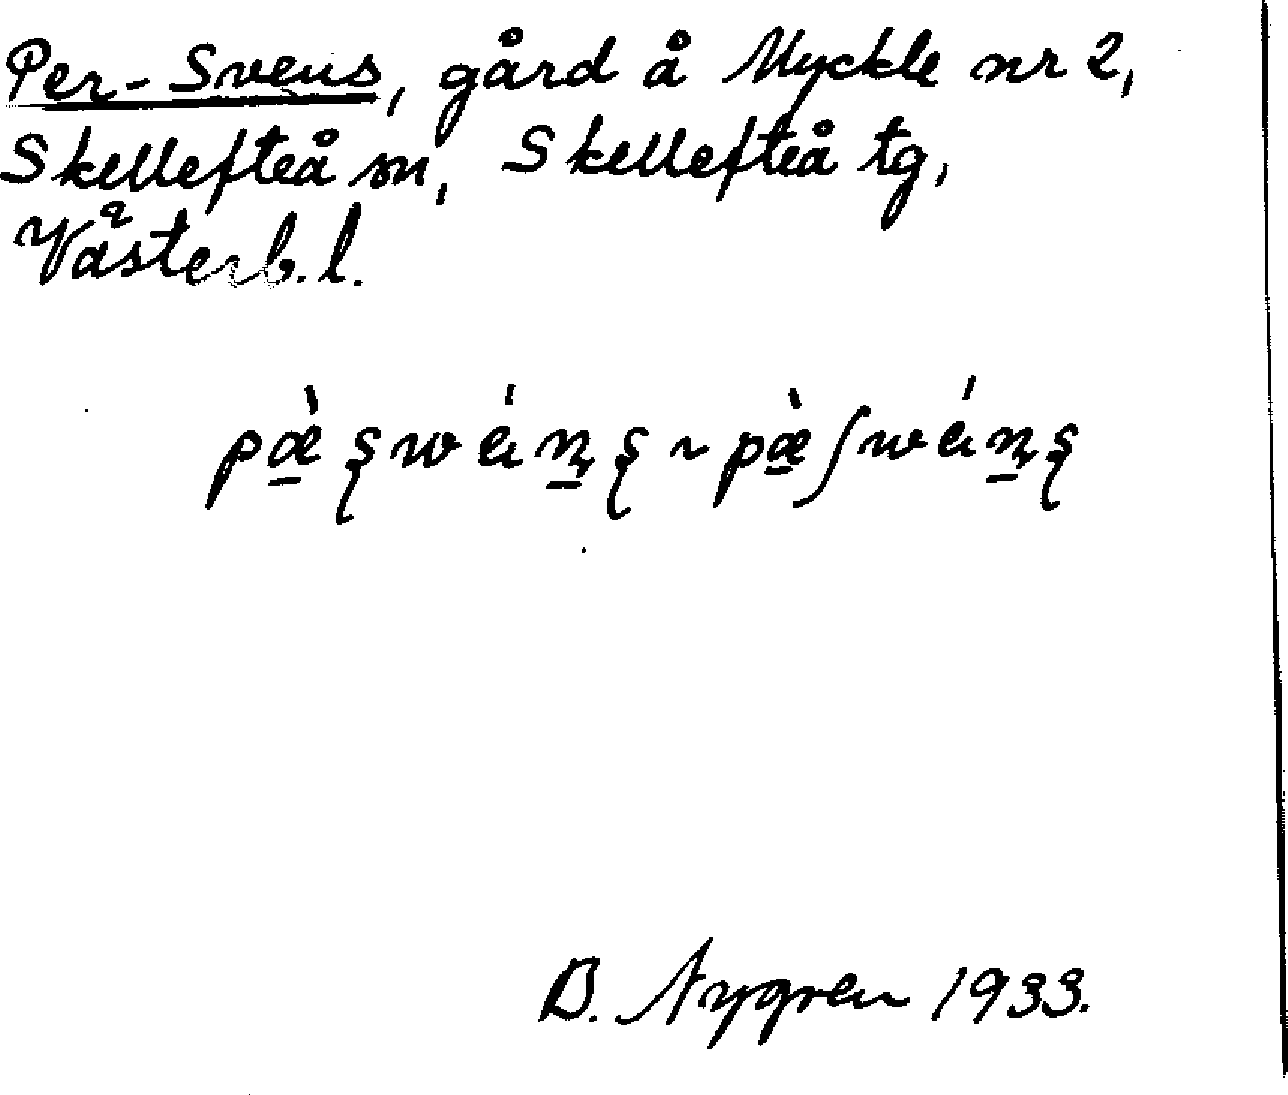 Per-Svens, gård å Myckle nr 2,
Skellefteå sn, Skellefteå tg,
Västerb. l.
B. Nygren 1933.